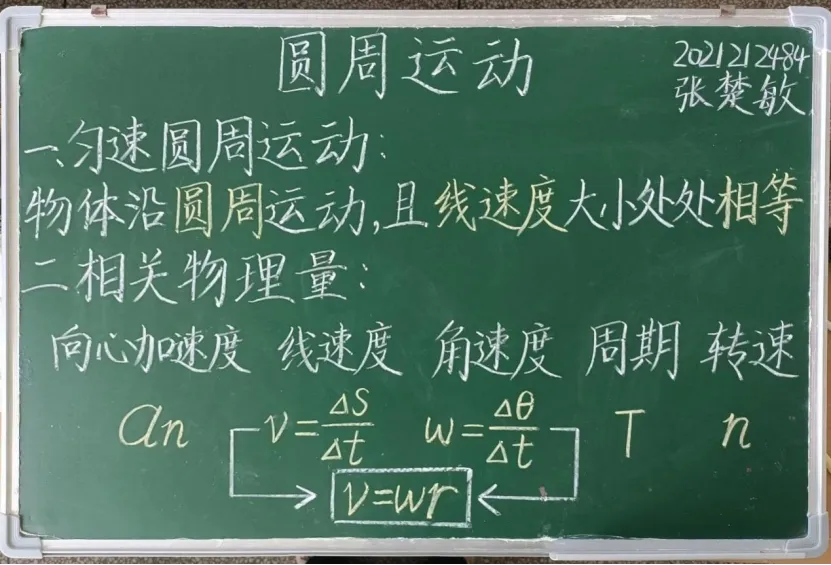 圆周运动
2021212484
张楚敏
一、匀速圆周运动：
物体沿圆周运动，且线速度大小处处相等
二相关物理量：
向心加速度 线速度 角速度 周期 转速
an v=Δs/Δt w=Δθ/Δt T n
v=wr